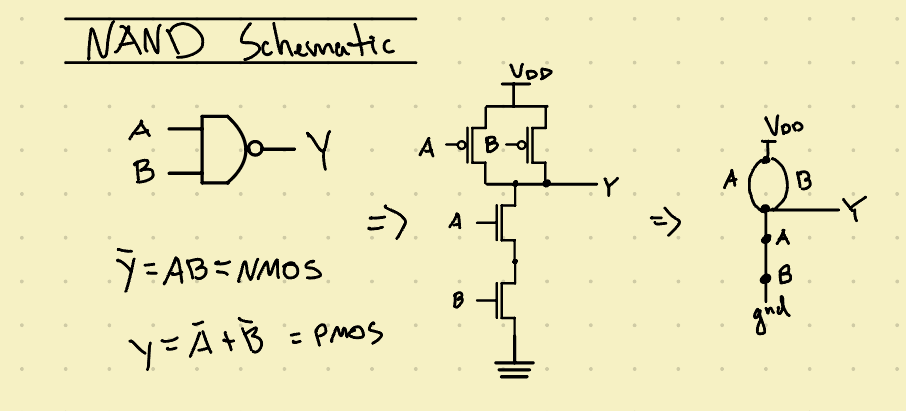 NAND Schematic
A
B
Y
Ȳ = AB = NMOS
Y = Ā + B̄ = PMOS
=>
VDD
A
B
Y
A
B
=>
VDD
A
B
Y
A
B
gnd